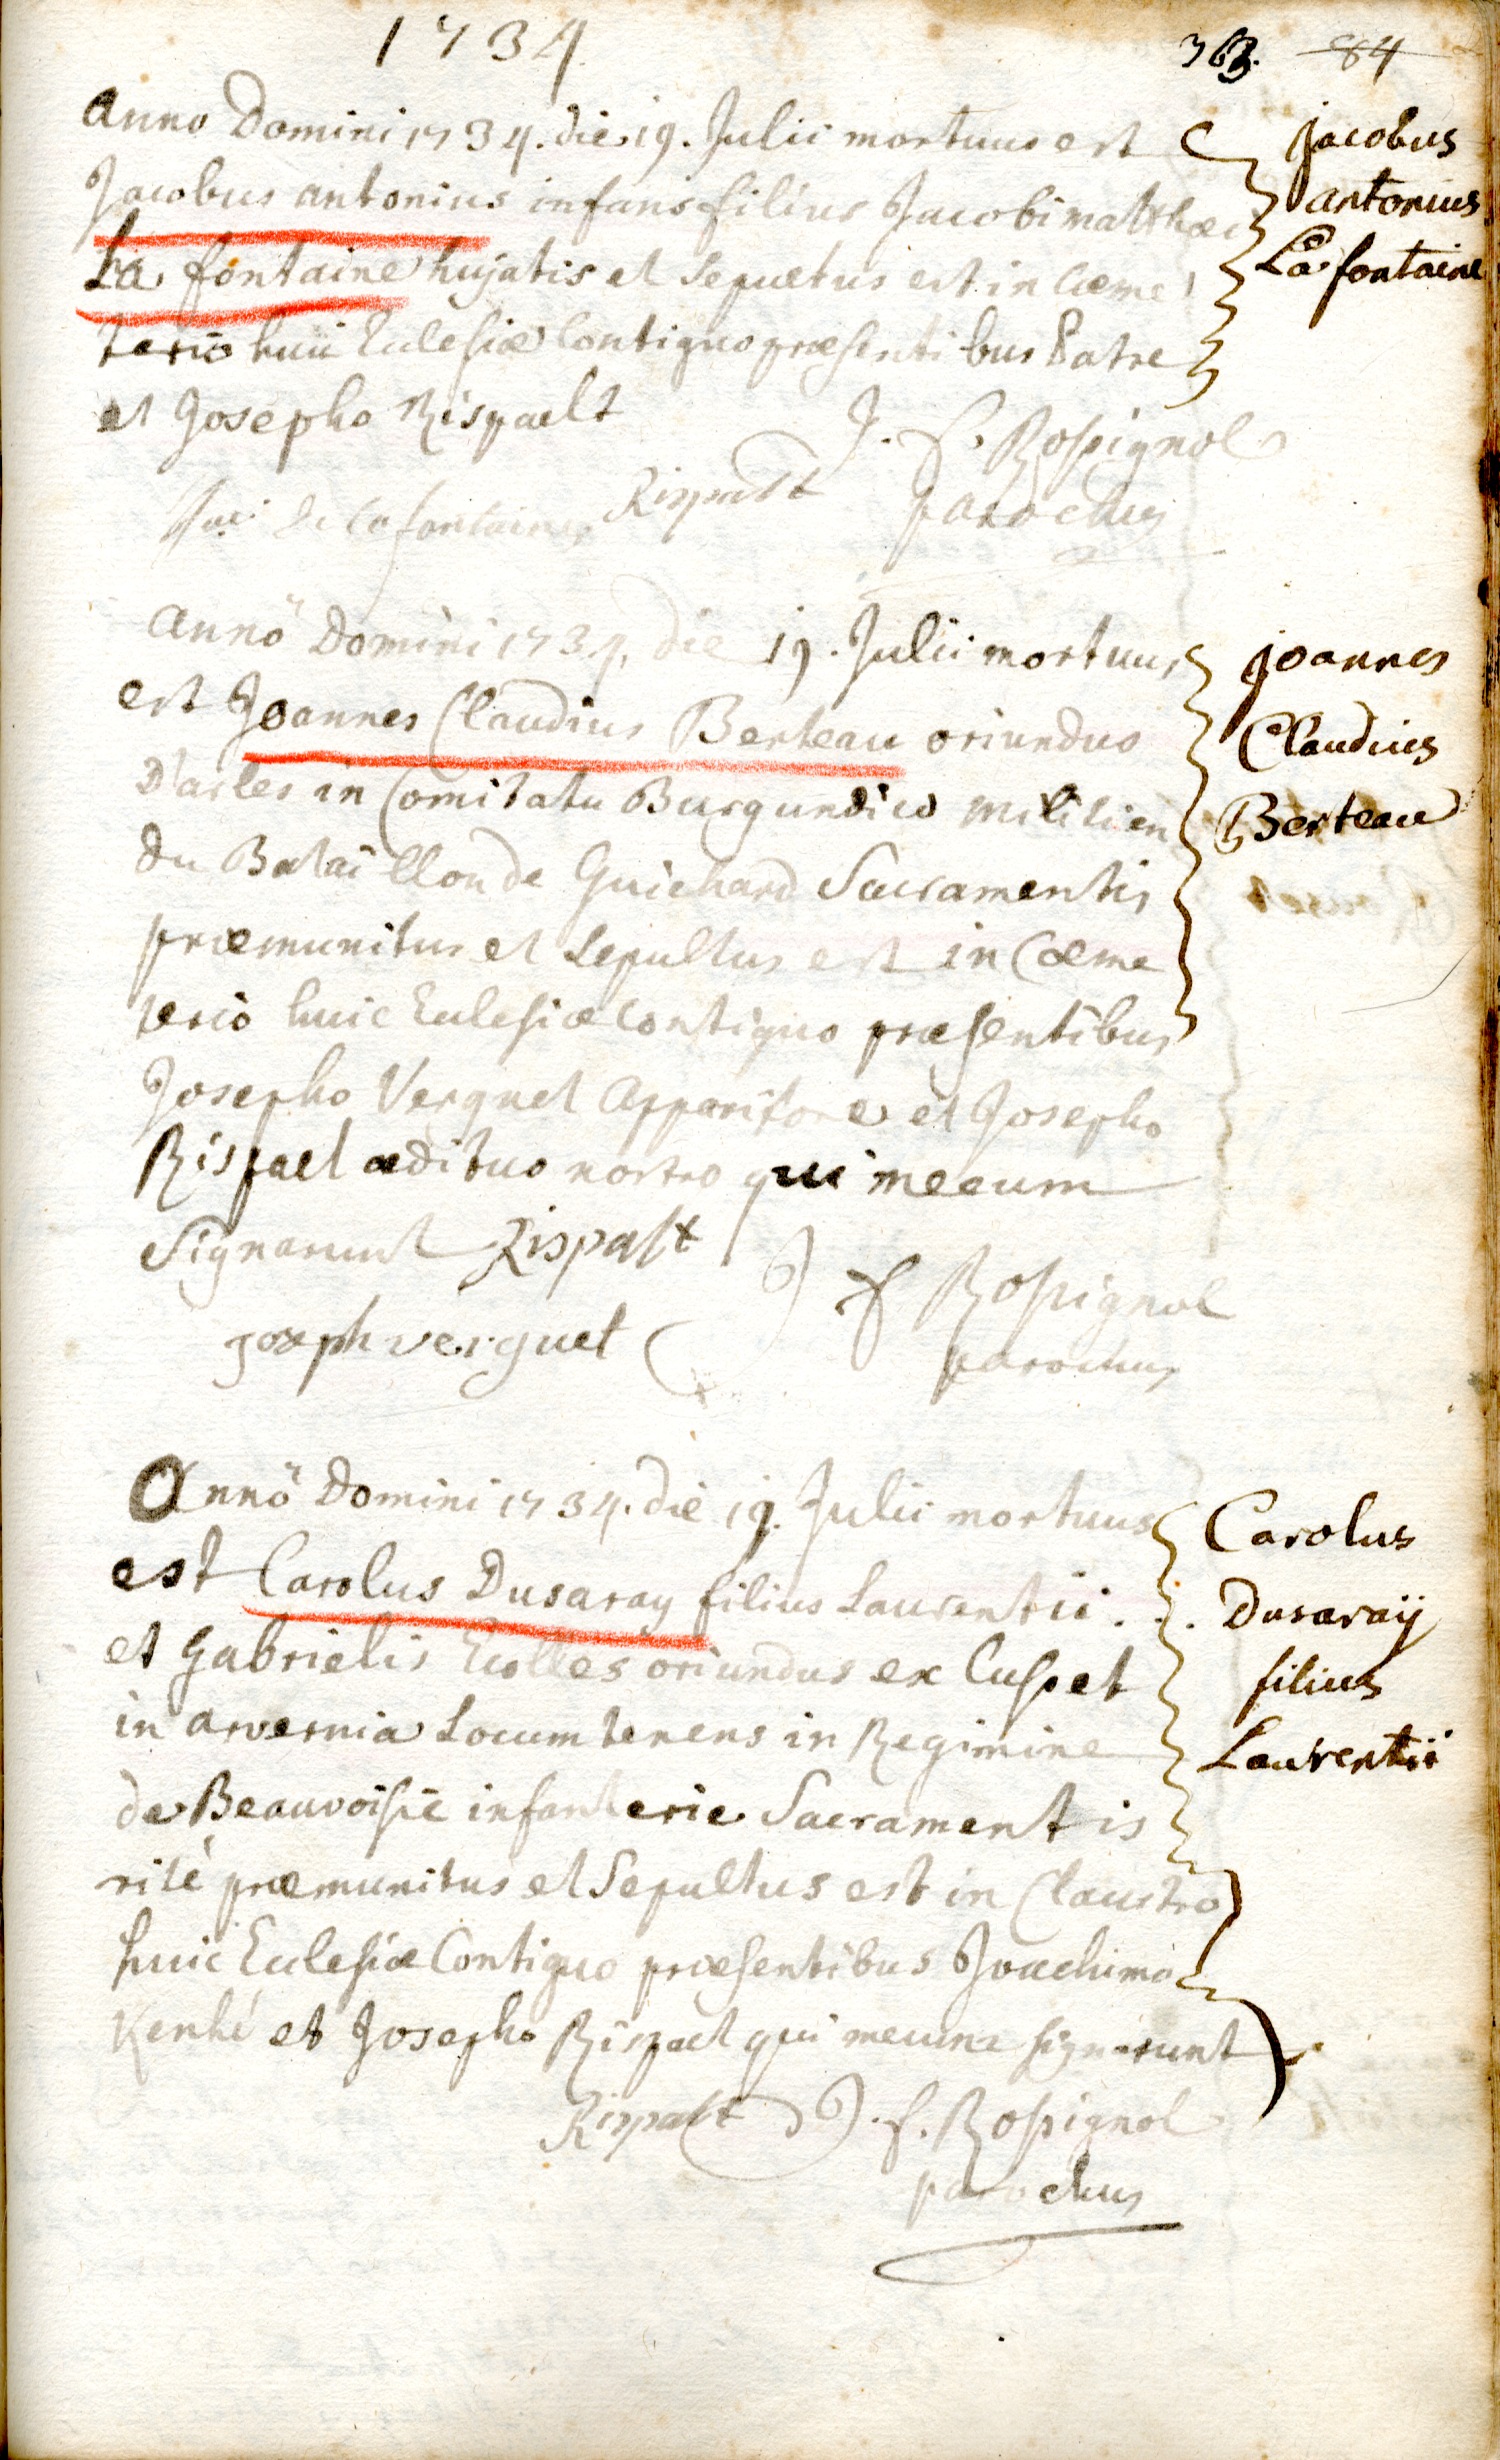 1734
363. 84
Anno Domini 1734. die 19. Julii mortuus est
Jacobus antonius infans filius Jacobi matthæi
La fontaine hujatis et Sepultus est in Cœme
terio huic Ecclesiæ Contiguo præsentibus Patre
et Josepho Rispaelt
J. f. Rossignol
parochus
Rispalt
de lafontaine
Jacobus
antonius
La fontaine
Anno Domini 1734. die 19. Julii mortuus
est Joannes Claudius Berteau oriundus
D'arles in Comitatu Burgundico militien
du Bataillon de Guichard Sacramentis
præmunitus et Sepultus est in Cœme
terio huic Ecclesiæ Contiguo præsentibus
Josepho Verguet Apparitore et Josepho
Rispaet ædituo nostro qui mecum
Signarunt Rispalt
J f Rossignol
joseph verguet
parochus
joannes
Claudius
Berteau
Anno Domini 1734. die 19. Julii mortuus
est Carolus Dusaray filius Laurentii
et Gabrielis Ecolles oriundus ex Cusset
in arvernia Locumtenens in Regimine
de Beauvoisie infanterie Sacramentis
ritè præmunitus et Sepultus est in Claustro
huic Ecclesiæ Contiguo præsentibus Joachimo
Kenké et Josepho Rispaet qui mecum signarunt
Rispalt J. f. Rossignol
parochus
Carolus
Dusaraÿ
filius
Laurentii